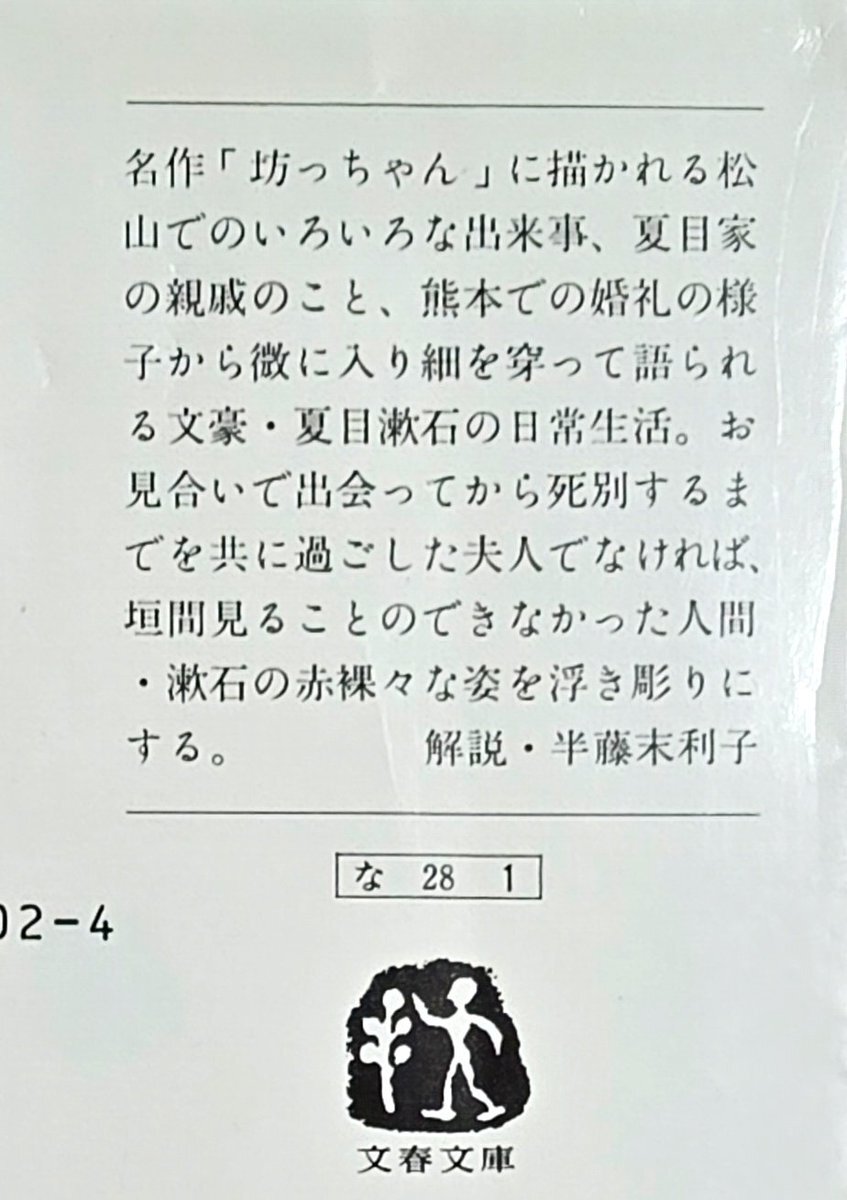 名作「坊っちゃん」に描かれる松
山でのいろいろな出来事、夏目家
の親戚のこと、熊本での婚礼の様
子から微に入り細を穿って語られ
る文豪・夏目漱石の日常生活。お
見合いで出会ってから死別するま
でを共に過ごした夫人でなければ、
垣間見ることのできなかった人間
・漱石の赤裸々な姿を浮き彫りに
する。 解説・半藤末利子
な 28 1
02-4
文春文庫